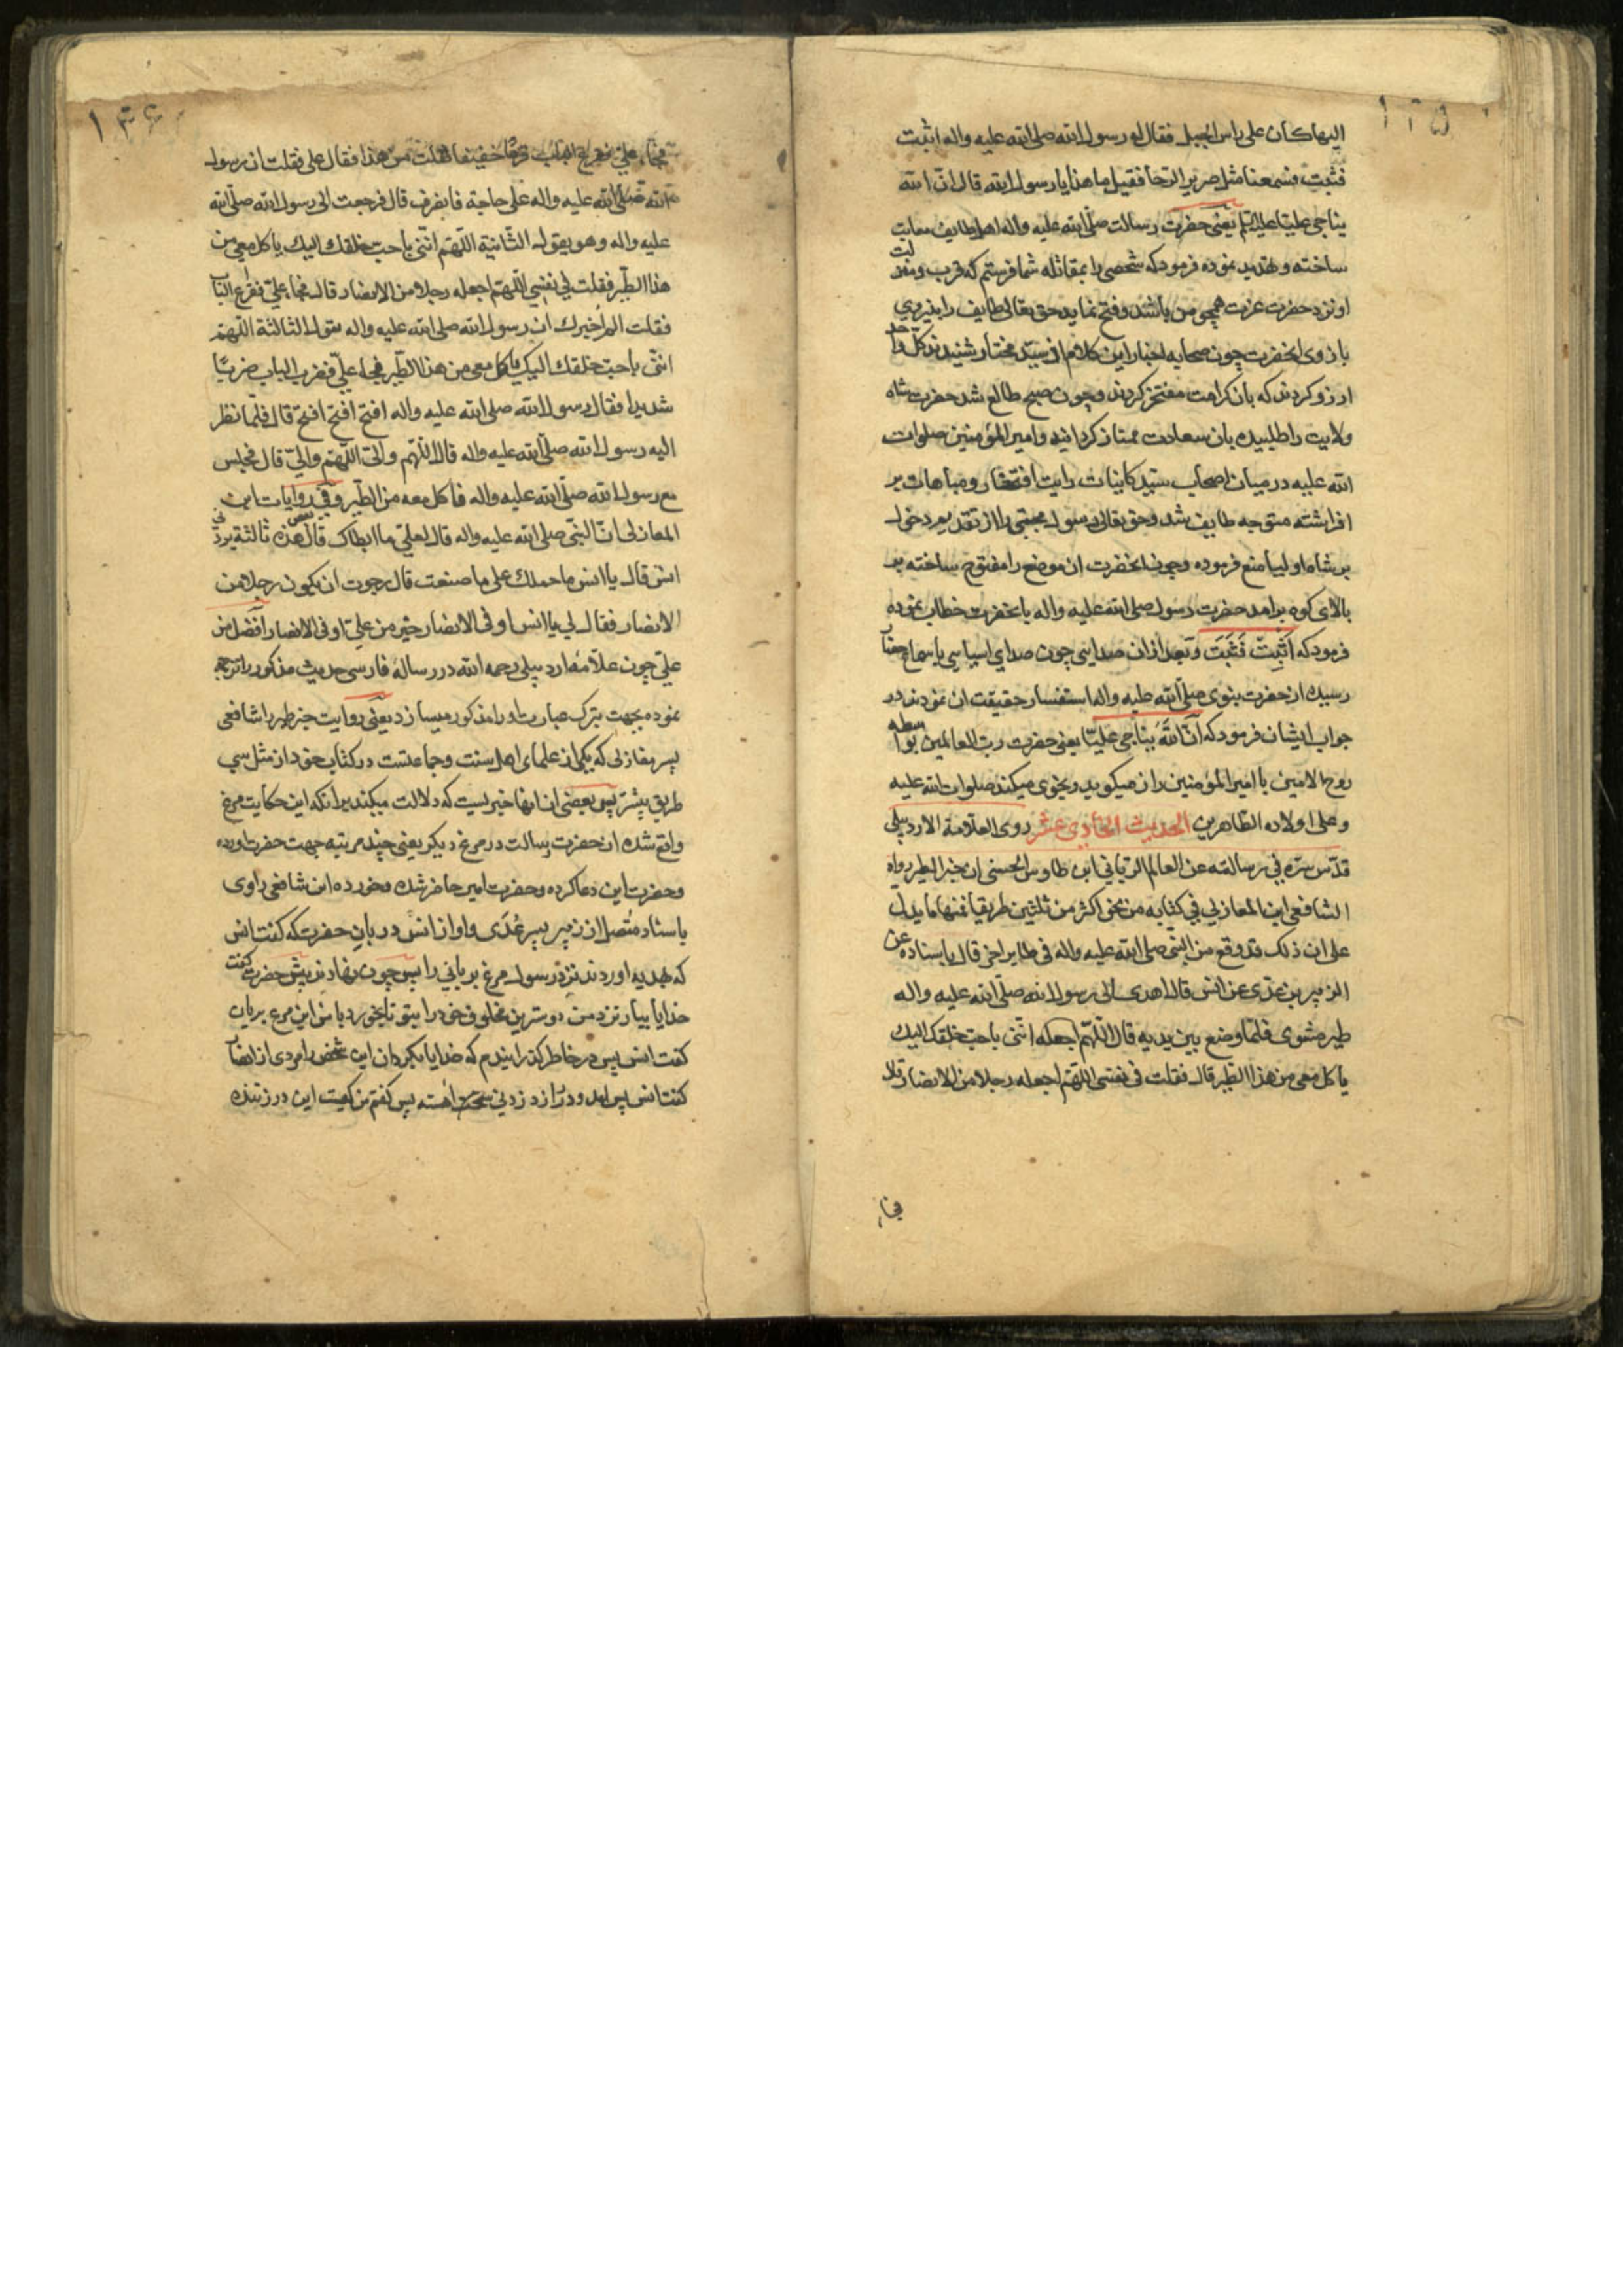 ١٢٥
اليها كان على راس الجبل فقال له رسول الله صلى الله عليه واله اثبت
فثبت فسمعنا مثل صرير الرحا فقيل ما هذا يا رسول الله قال ان الله
يناجي عليا عليه السلم يعنى حضرت رسالت صلى الله عليه واله اهل طايف
ساخته و تهديد نموده فرمود كه شخصى را بمقاتله شما فرستم كه قرب و منزلت
او نزد حضرت عزت همچو من باشد و فتح نمايد حق تعالى طايف را بنيروي
بازوى انحضرت چون صحابه اخيار اين كلام از سيد مختار شنيدند كل واحد
ارزو كردند كه بان كرامت مفتخر كردند و چون صبح طالع شد حضرت شاه
ولايت را طلبيده بان سعادت ممتاز كردانيد و امير المؤمنين صلوات
الله عليه در ميان اصحاب سيد كاينات رايت افتخار و مباهات بر
افراشته متوجه طايف شد و حق تعالى رسول مجتبى را از تقديم دخول
بر شاه اوليا منع فرموده و چون انحضرت ان موضع را مفتوح ساخته بر
بالاى كوه برامد حضرت رسول صلى الله عليه واله با نحضرت خطاب نموده
فرمود كه اثبت فثبت و بعد ازان صدايى چون صداي اسياسي باسماع
رسيد از حضرت نبوى صلى الله عليه واله استفسار حقيقت ان نمودند در
جواب ايشان فرمود كه ان الله يناجى عليا يعنى حضرت رب العالمين بواسطه
روح الامين با امير المؤمنين راز ميكويد و نجوى ميكند صلوات الله عليه
و على اولاده الطاهرين الحديث الحادى عشر روى العلامة الاردبيلى
قدس سره في رسالته عن العالم الرباني ابن طاوس الحسنى ان خبر الطير رواه
الشافعى ابن المغازلي في كتابه من نحو اكثر من ثلثين طريقا فمنها ما يدل
على ان ذلك قد وقع من النبى صلى الله عليه واله فى طاير اخر قال باسناده عن
الزبير بن عدى عن انس قال اهدى الى رسول الله صلى الله عليه واله
طير مشوى فلما وضع بين يديه قال اللهم اجعله ائتنى باحب خلقك اليك
يا كل معى من هذا الطير قال فقلت فى نفسى اللهم اجعله رجلا من الانصار قال
فجاء
١٢٦
فجاء على فقرع الباب قرعا خفيفا فقلت من هذا فقال على فقلت ان رسول
الله صلى الله عليه واله على حاجة فانصرف قال فرجعت الى رسول الله صلى الله
عليه واله وهو يقول الثانية اللهم ائتنى باحب خلقك اليك ياكل معي من
هذا الطير فقلت في نفسي اللهم اجعله رجلا من الانصار قال فجاء على فقرع الباب
فقلت الم اخبرك ان رسول الله صلى الله عليه واله يقول الثالثة اللهم
ائتنى باحب خلقك اليك ياكل معى من هذا الطير فجاء على فضرب الباب ضربا
شديدا فقال رسول الله صلى الله عليه واله افتح افتح افتح قال فلما نظر
اليه رسول الله صلى الله عليه واله قال اللهم والى اللهم والى قال فجلس
مع رسول الله صلى الله عليه واله فاكل معه من الطير وفى روايات ابن
المغازلى ان النبى صلى الله عليه واله قال لعلى ما ابطاك قال هذه ثالثة يردنى
انس قال يا انس ما حملك على ما صنعت قال رجوت ان يكون رجلا من
الانصار فقال لى يا انس او فى الانصار خير من على او فى الانصار افضل من
على چون علامه اردبيلى رحمه الله در رساله فارسى حديث مذكور را ترجمه
نموده بجهت تبرك عبارت او را مذكور ميسازد يعنى روايت خبر طير را شافعى
پسر مغازلى كه يكى از علماى اهل سنت و جماعتست در كتاب خود از مثل سى
طريق بيشتر پس بعضى از انها خبريست كه دلالت ميكند برانكه اين حكايت مرغ
واقع شده از حضرت رسالت در مرغ ديكر يعنى چند مرتبه جهت حضرت اورده
و حضرت اين دعا كرده و حضرت امير حاضر شده و خورده اند شافعى راوى
باسناد متصل از زبير پسر عدى و او از انس دربان حضرت كه كفت انس
كه بهديه اوردند نزد رسول مرغ بريانى را پس چون نهادند پيش حضرت كفت
خدايا بيار نزد من دوسترين مخلوق خود را بتو تا بخورد با من اين مرغ بريان
كفت انس پس در خاطر كذرانيدم كه خدايا بكردان اين شخص را مردى از انصار
كفت انس پس امد و در را زد زدنى اهسته پس كفتم من كيست اين در زننده